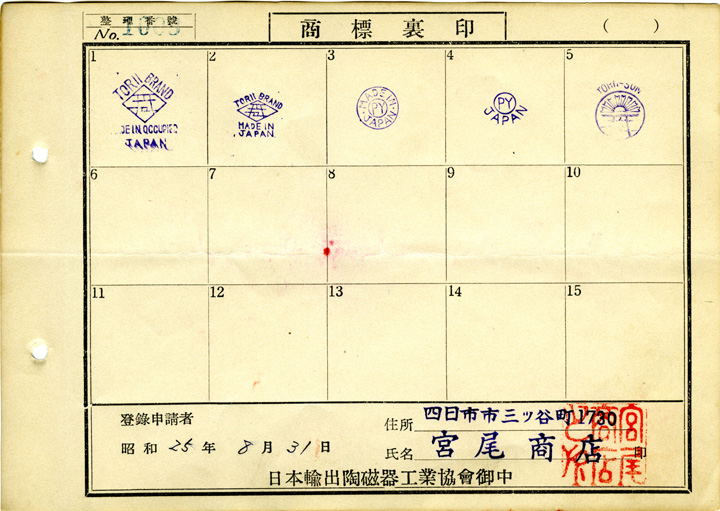 整理番號
No. 1003
商標裏印
( )
1
TORII BRAND
DE IN OCCUPIED
JAPAN
2
TORII BRAND
MADE IN
JAPAN
3
MADE IN
PY
JAPAN
4
PY
JAPAN
5
TORII-SUN
6
7
8
9
10
11
12
13
14
15
登錄申請者
昭和25年8月31日
住所 四日市市三ッ谷町1730
氏名 宮尾商店 印
宮尾
商店
日本輸出陶磁器工業協會御中